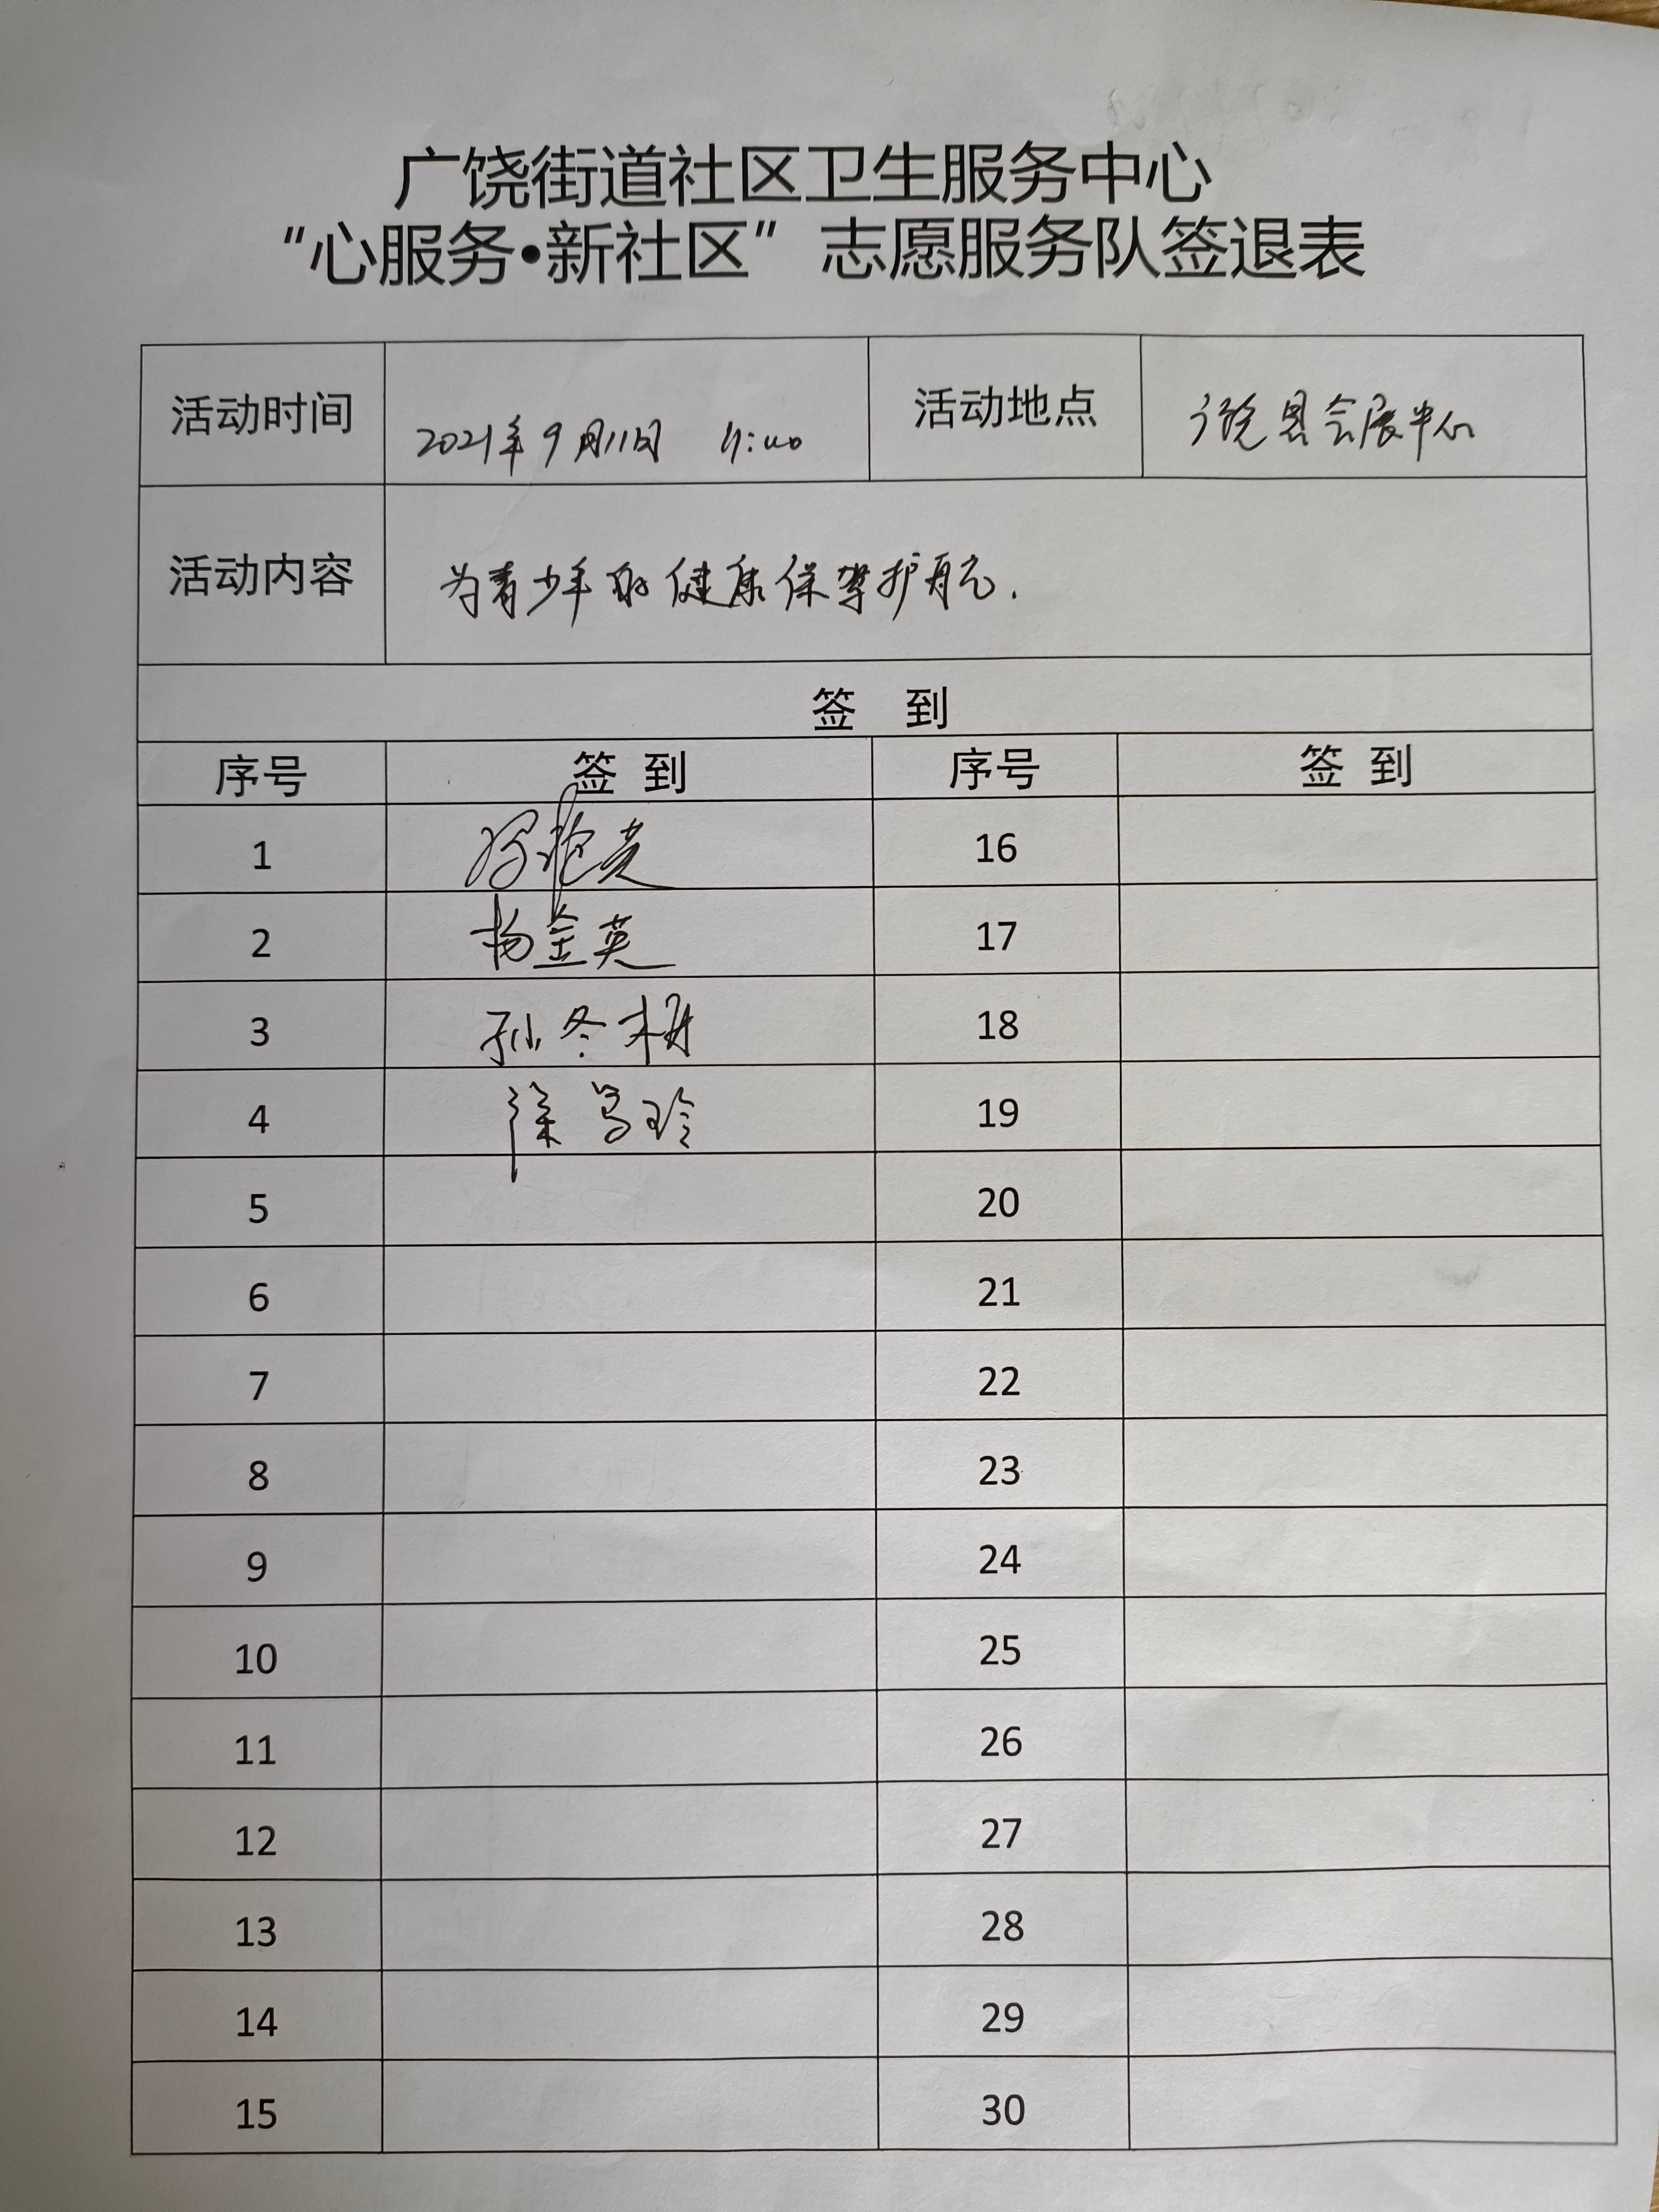 广饶街道社区卫生服务中心
“心服务•新社区”志愿服务队签退表
活动时间 2021年9月11日 活动地点 广饶县会展中心
活动内容 为青少年的健康保驾护航.
签 到
序号 签 到 序号 签 到
1 16
2 杨金英 17
3 孙冬梅 18
4 徐 玲 19
5 20
6 21
7 22
8 23
9 24
10 25
11 26
12 27
13 28
14 29
15 30